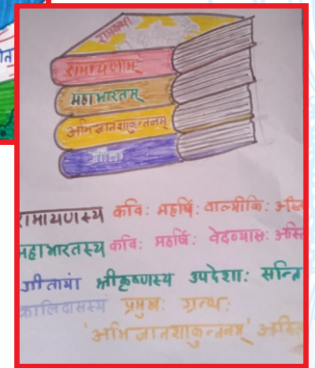 रामायणम्
महाभारतम्
अभिज्ञानशाकुन्तलम्
गीता
रामायणस्य कविः महर्षिः वाल्मीकिः अस्ति
महाभारतस्य कविः महर्षिः वेदव्यासः अस्ति
गीतायां श्रीकृष्णस्य उपदेशाः सन्ति
कालिदासस्य प्रमुखः ग्रन्थः
'अभिज्ञानशाकुन्तलम्' अस्ति